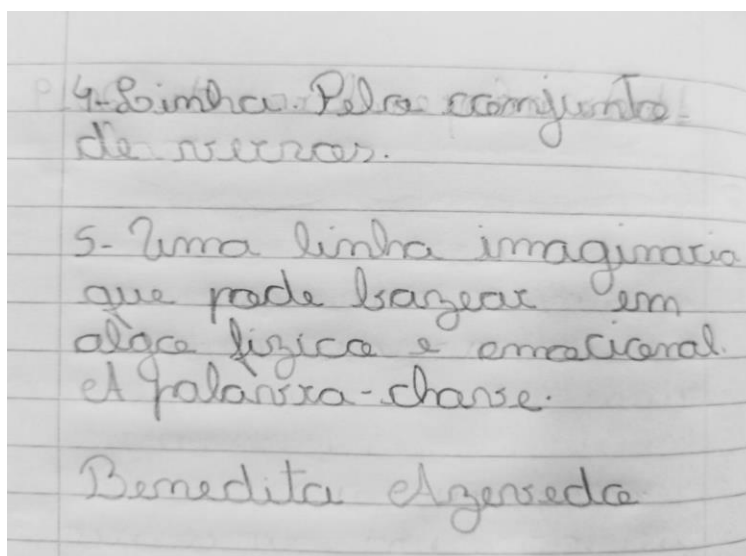 4-Linha. Pelo comjunto
de versos.
5- Uma linha imaginaria
que pode bazear em
algo fizico e emocional.
A palavra-chave.
Benedita Azevedo